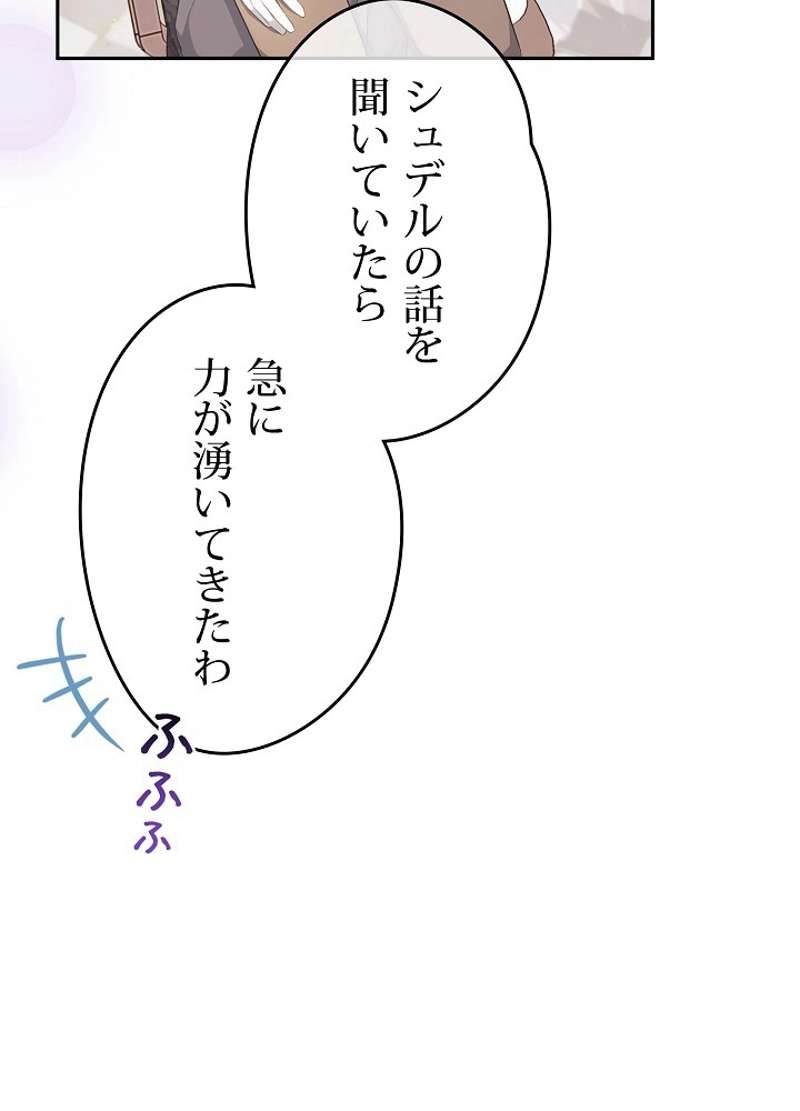 シュデルの話を
聞いていたら
急に
力が湧いてきたわ
ふふふ